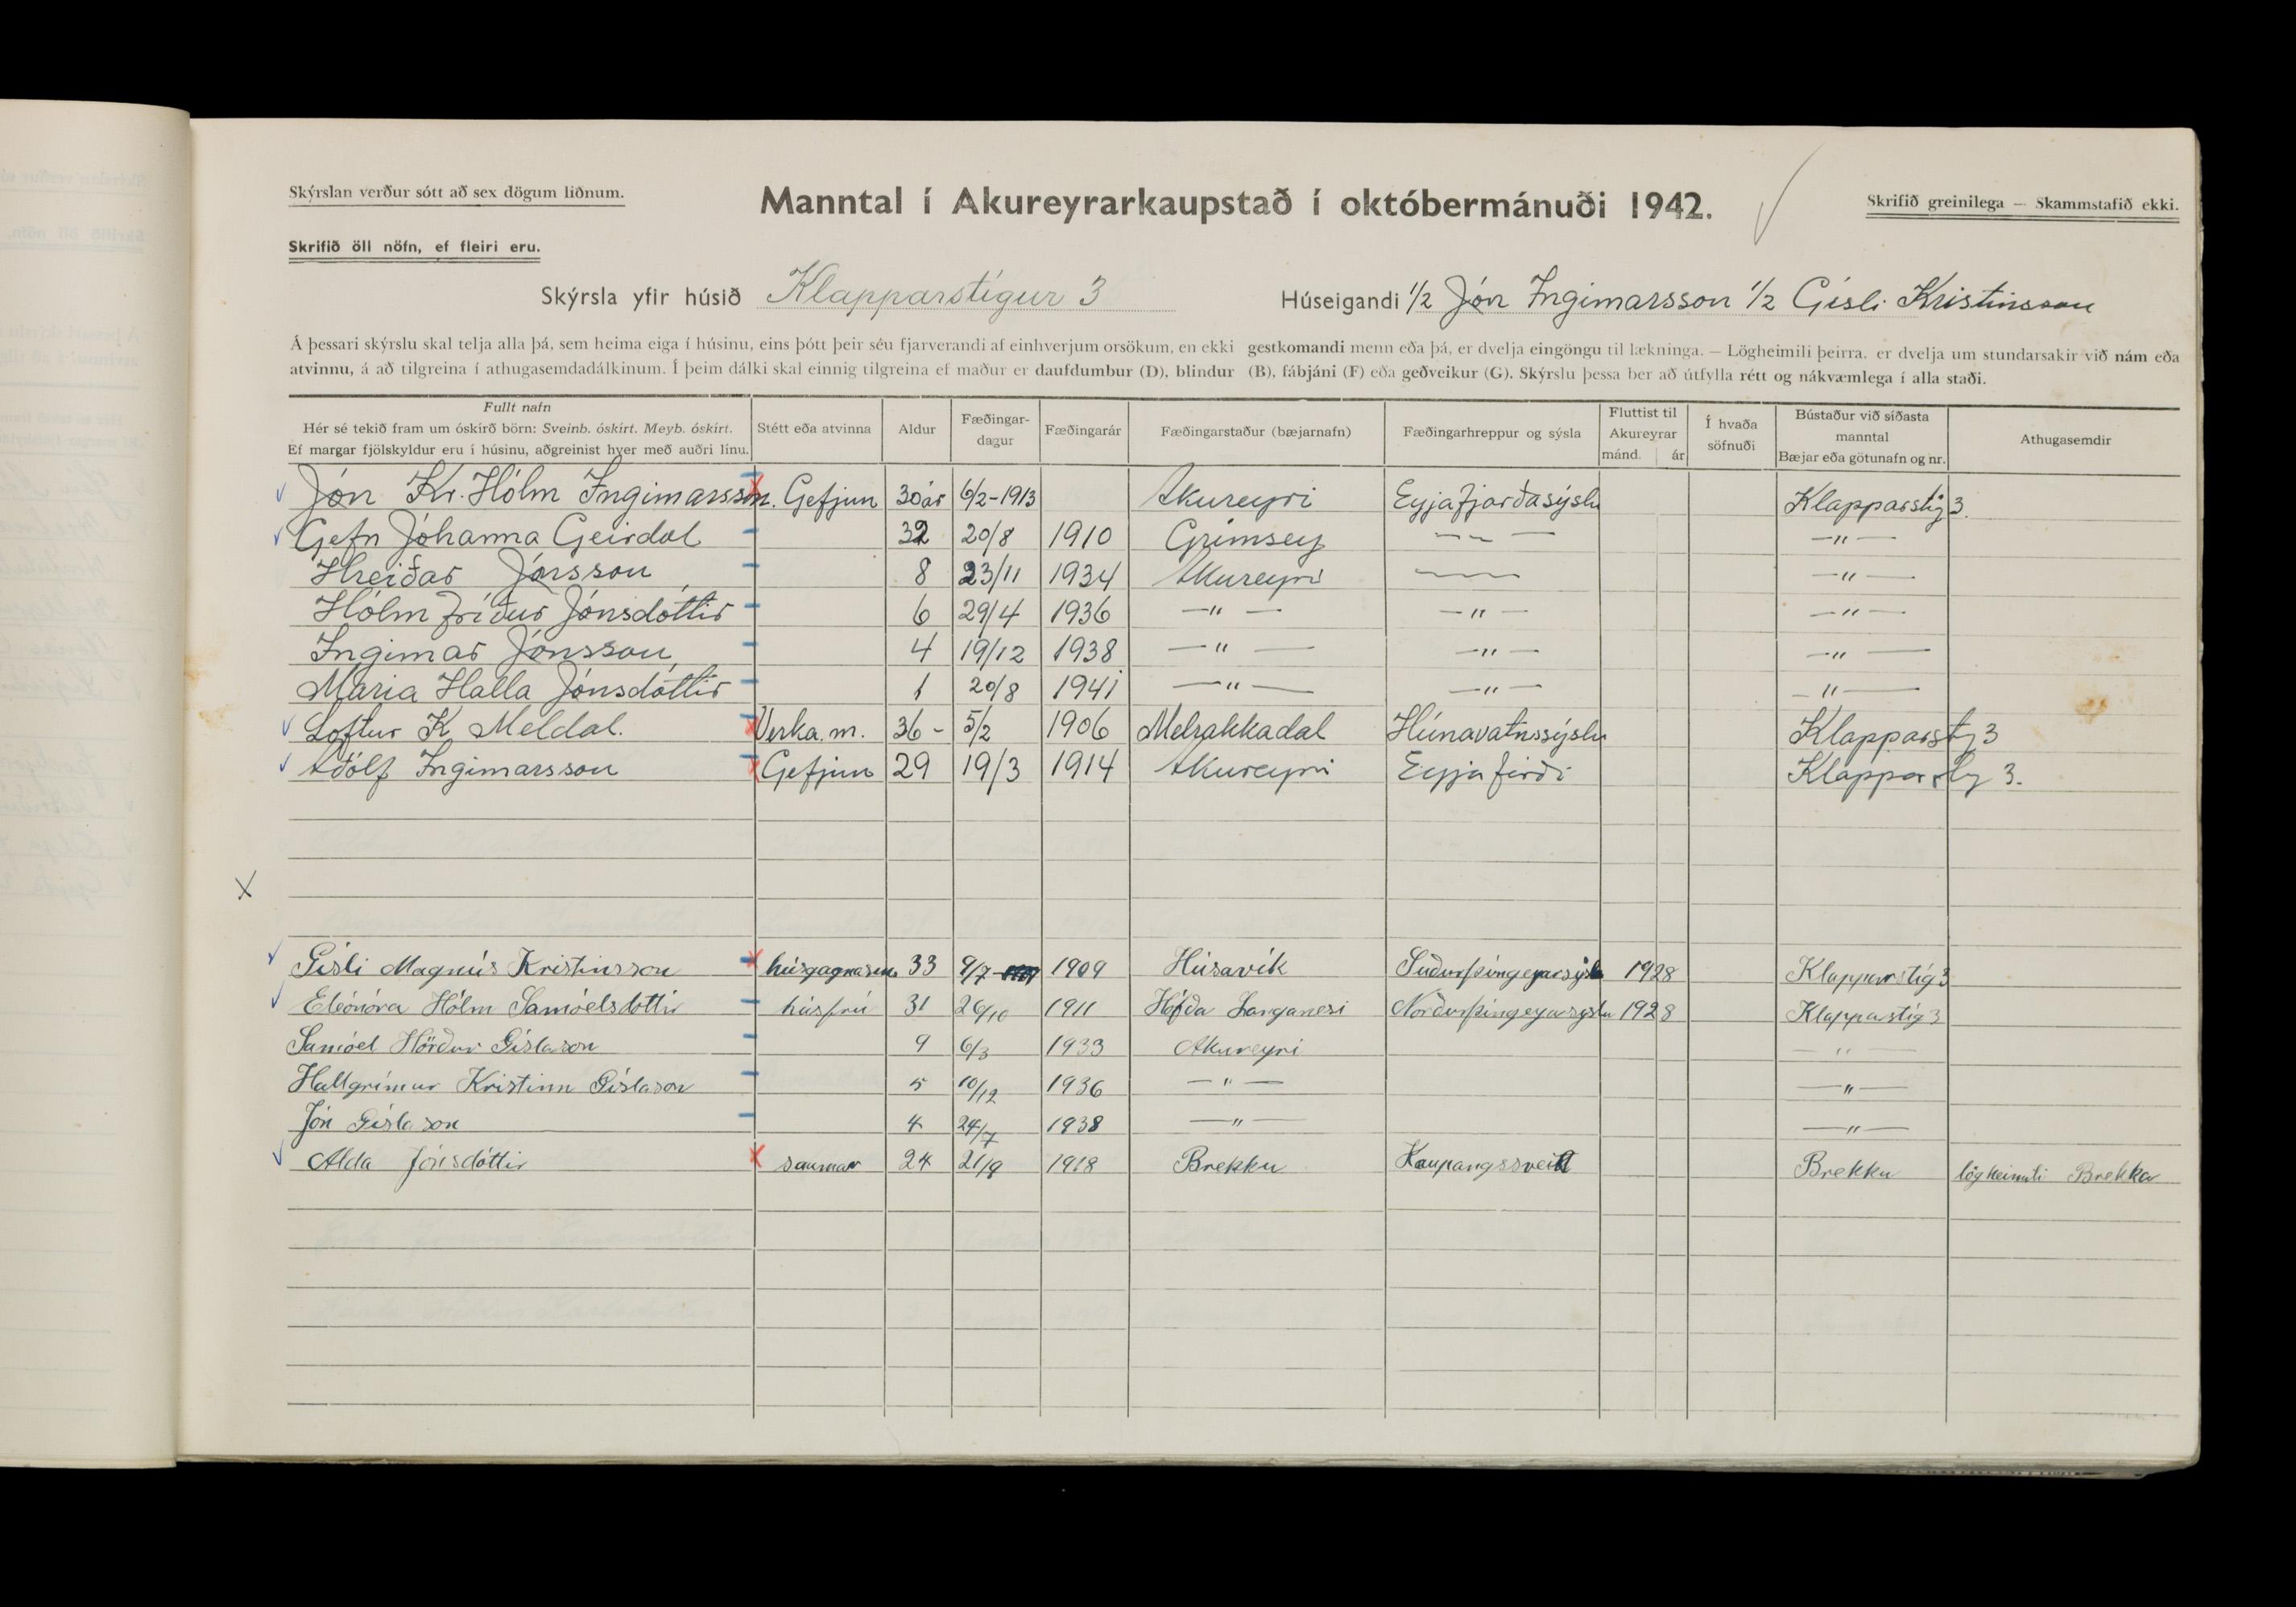 Skýrslan verður sótt að sex dögum liðnum.
Manntal í Akureyrarkaupstað í októbermánuði 1942.
Skrifið greinilega — Skammstafið ekki.
Skrifið öll nöfn, ef fleiri eru.
Skýrsla yfir húsið Klapparstígur 3 Húseigandi 1/2 Jón Ingimarsson 1/2 Gísli Kristinsson
Á þessari skýrslu skal telja alla þá, sem heima eiga í húsinu, eins þótt þeir séu fjarverandi af einhverjum orsökum, en ekki gestkomandi menn eða þá, er dvelja eingöngu til lækninga. — Lögheimili þeirra, er dvelja um stundarsakir við nám eða
atvinnu, á að tilgreina í athugasemdadálkinum. Í þeim dálki skal einnig tilgreina ef maður er daufdumbur (D), blindur (B), fábjáni (F) eða geðveikur (G). Skýrslu þessa ber að útfylla rétt og nákvæmlega í alla staði.
Fullt nafn
Hér sé tekið fram um óskírð börn: Sveinb. óskírt. Meyb. óskírt.
Ef margar fjölskyldur eru í húsinu, aðgreinist hver með auðri línu.
Stétt eða atvinna
Aldur
Fæðingar-
dagur
Fæðingarár
Fæðingarstaður (bæjarnafn)
Fæðingarhreppur og sýsla
Fluttist til
Akureyrar
mánd. ár
Í hvaða
söfnuði
Bústaður við síðasta
manntal
Bæjar eða götunafn og nr.
Athugasemdir
Jón Kr. Hólm Ingimarsson. Gefjun 30 ár 6/2-1913 Akureyri Eyjafjarðasýslu Klapparstíg 3.
Gefn Jóhanna Geirdal 32 20/8 1910 Grímsey — — — —"—
Hreiðar Jónsson 8 23/11 1934 Akureyri — —"—
Hólmfríður Jónsdóttir 6 29/4 1936 —"— —"— —"—
Ingimar Jónsson 4 19/12 1938 —"— —"— —"—
María Halla Jónsdóttir 1 20/8 1941 —"— —"— —"—
Loftur K Meldal. Verka.m. 36 - 5/2 1906 Melrakkadal Húnavatnssýslu Klapparstg 3
Adólf Ingimarsson Gefjun 29 19/3 1914 Akureyri Eyjafirði Klapparstg 3.
Gísli Magnús Kristinsson húsgagnasm. 33 9/7 1909 Húsavík Suðurþingeyarsýslu 1928 Klapparstíg 3
Eleónóra Hólm Samóelsdóttir húsfrú 31 26/10 1911 Höfða Langanesi Norðurþingeyarsýslu 1928 Klappastíg 3
Samóel Hörður Gíslason 9 6/3 1933 Akureyri —"—
Hallgrímur Kristinn Gíslason 5 10/12 1936 —"— —"—
Jón Gíslason 4 24/7 1938 —"— —"—
Alda Jónsdóttir saumar 24 21/9 1918 Brekku Kaupangssveit Brekku lögheimili Brekka